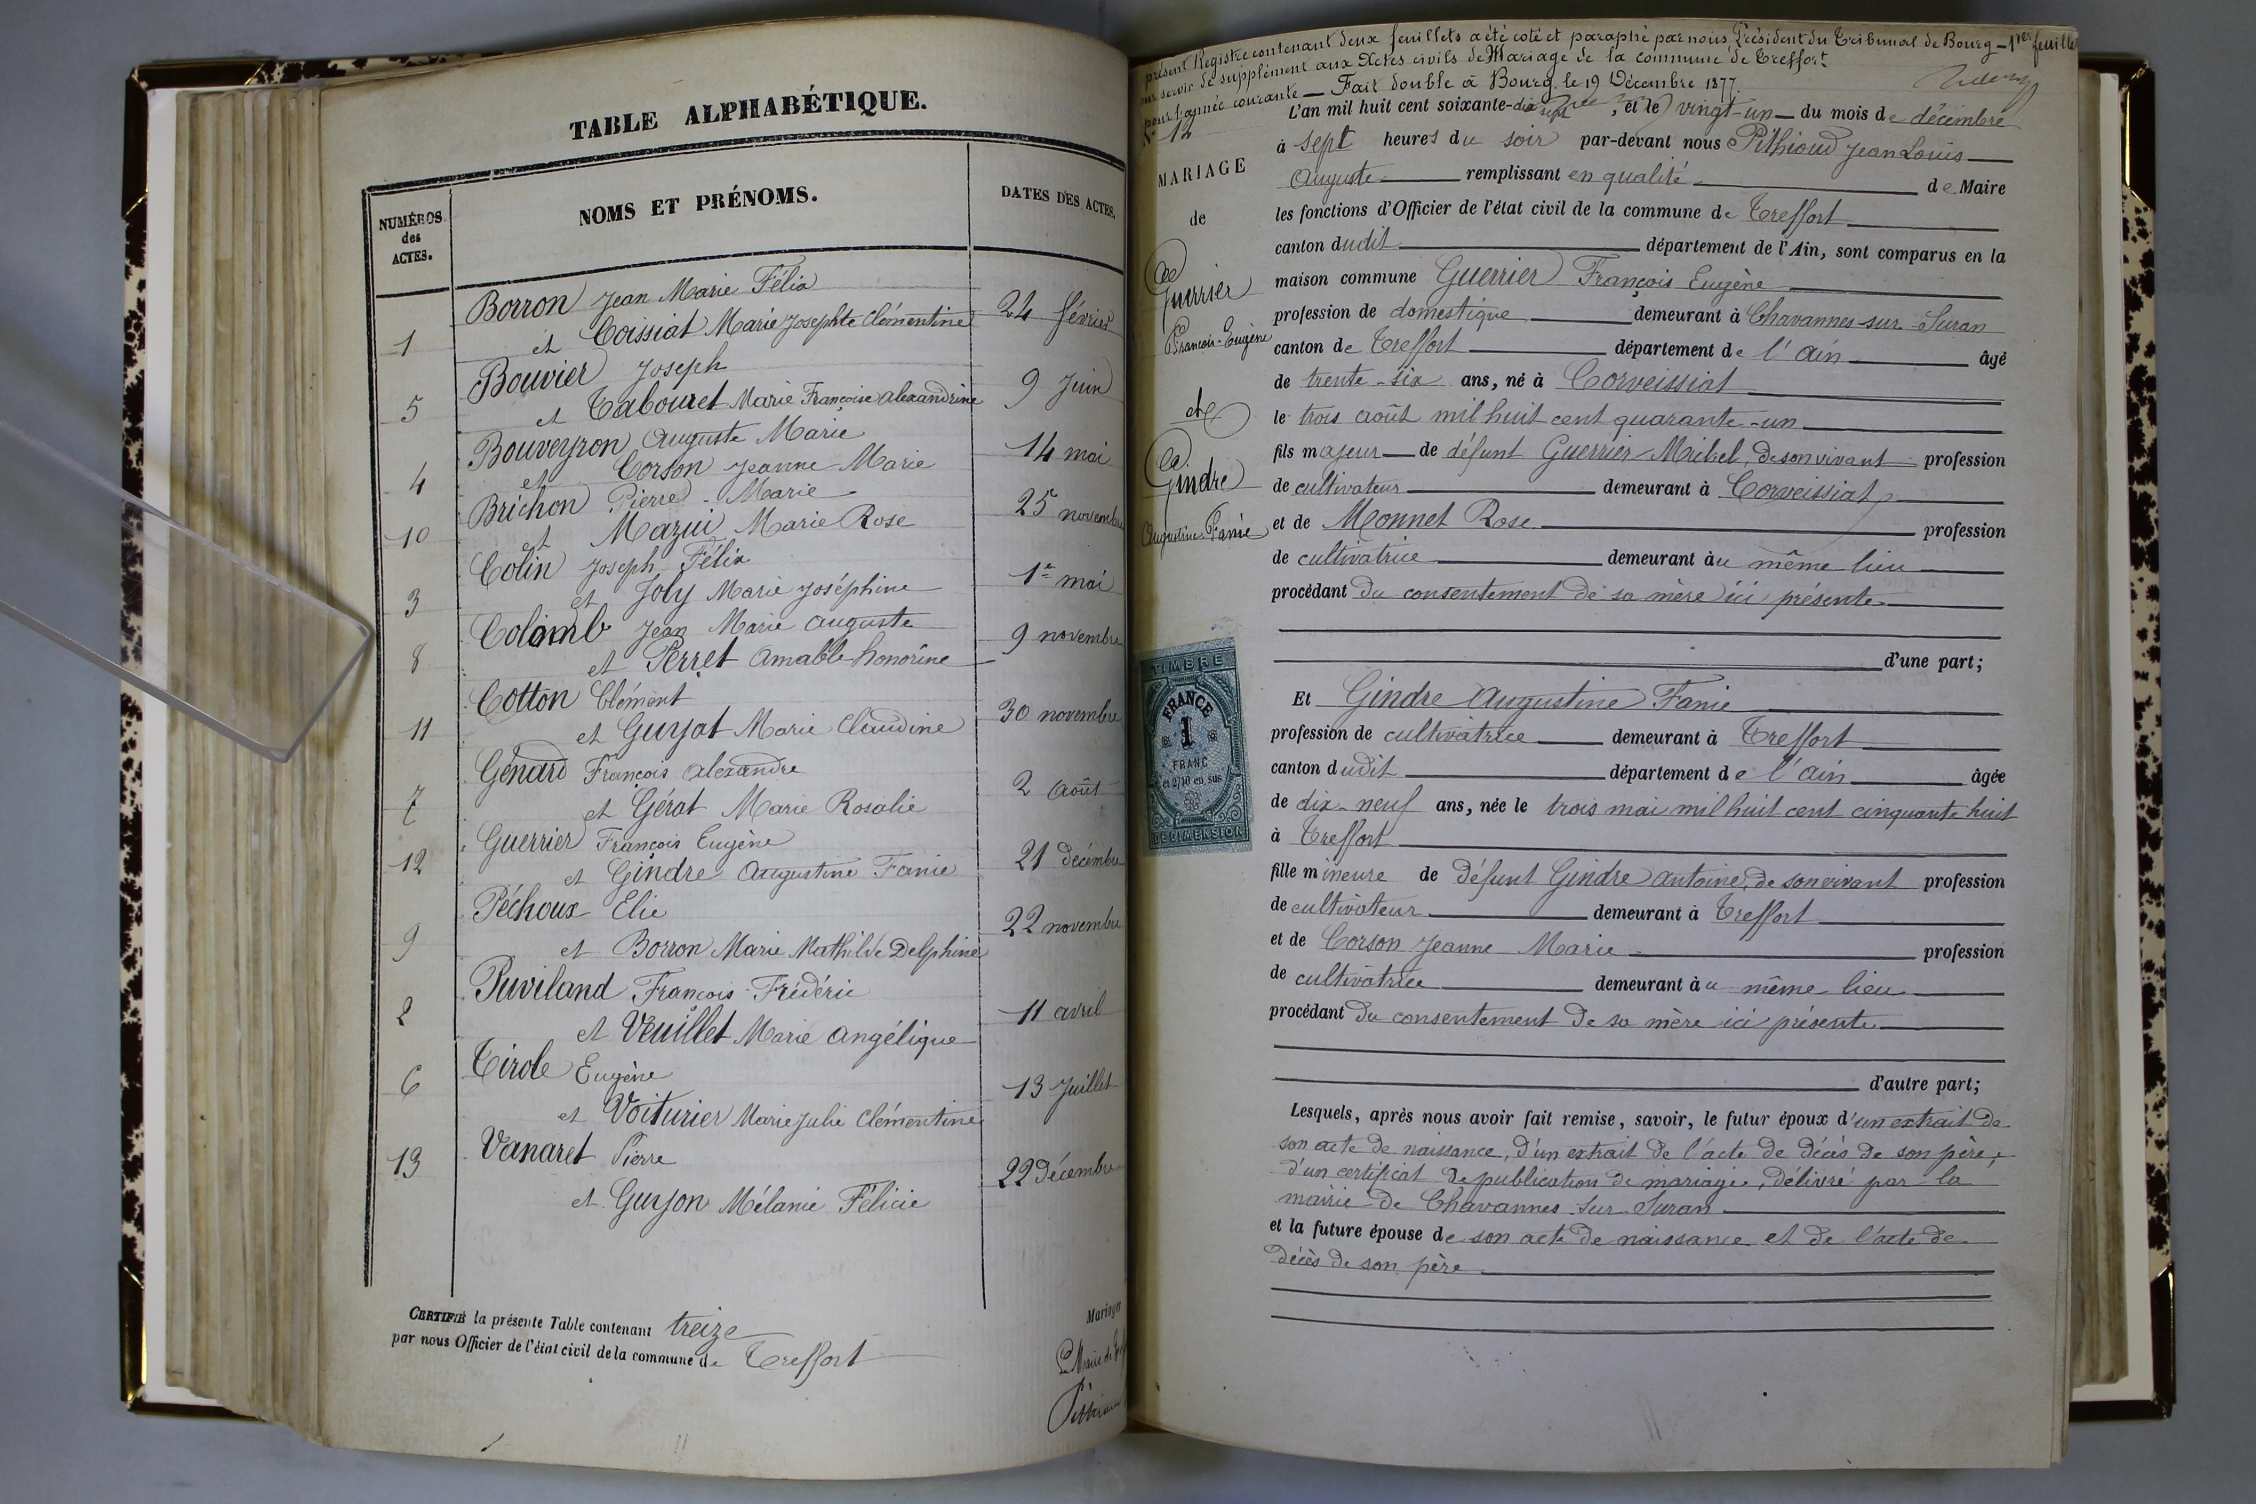 TABLE ALPHABÉTIQUE.
NUMÉROS des ACTES.
NOMS ET PRÉNOMS.
DATES DES ACTES.
Borron Jean Marie Félix
1 et Coissiat Marie Josephte Clémentine 24 février
Bouvier Joseph
5 et Tabouret Marie Françoise Alexandrine 9 Juin
Bouveyron Auguste Marie
4 et Corson Jeanne Marie 14 mai
Brichon Pierre-Marie
10 et Mazui Marie Rose 25 novembre
Colin Joseph Félix
3 et Joly Marie Joséphine 1er mai
Colomb Jean Marie Auguste
8 et Perret Amable honorine 9 novembre
Cotton Clément
11 et Guyot Marie Claudine 30 novembre
Génard François Alexandre
7 et Gérat Marie Rosalie 2 Août
Guerrier François Eugène
12 et Gindre Augustine Fanie 21 décembre
Péchoux Elie
9 et Borron Marie Mathilde Delphine 22 novembre
Puviland François-Frédéric
2 et Veuillet Marie Angélique 11 avril
Tirole Eugène
6 et Voiturier Marie Julie Clémentine 13 Juillet
Vanaret Pierre
13 et Guyon Mélanie Félicie 22 Décembre
CERTIFIÉ la présente Table contenant treize Mariages
par nous Officier de l'état civil de la commune de Treffort
Le Maire de
présent Registre contenant deux feuillets a été coté et paraphé par nous Président du Tribunal de Bourg - 1er feuillet
servir de supplément aux Actes civils de Mariage de la commune de Treffort
pour l'année courante - Fait double à Bourg le 19 Décembre 1877.
No 12
MARIAGE
de
Guerrier
François-Eugène
et
Gindre
Augustine-Fanie
TIMBRE
FRANCE
1
FRANC
et 2/10 en sus
DE DIMENSION
L'an mil huit cent soixante-dix sept, et le vingt-un du mois de décembre
à sept heures du soir par-devant nous Pithioud Jean Louis
Auguste remplissant en qualité de Maire
les fonctions d'Officier de l'état civil de la commune de Treffort
canton dudit département de l'Ain, sont comparus en la
maison commune Guerrier François Eugène
profession de domestique demeurant à Chavannes-sur-Suran
canton de Treffort département de l'ain âgé
de trente-six ans, né à Corveissiat
le trois août mil huit cent quarante-un
fils majeur de défunt Guerrier Michel, de son vivant profession
de cultivateur demeurant à Corveissiat,
et de Monnet Rose profession
de cultivatrice demeurant au même lieu
procédant du consentement de sa mère ici présente
d'une part;
Et Gindre Augustine Fanie
profession de cultivatrice demeurant à Treffort
canton dudit département de l'ain âgée
de dix-neuf ans, née le trois mai mil huit cent cinquante huit
à Treffort
fille mineure de défunt Gindre Antoine, de son vivant profession
de cultivateur demeurant à Treffort
et de Corson Jeanne Marie profession
de cultivatrice demeurant au même lieu
procédant du consentement de sa mère ici présente
d'autre part;
Lesquels, après nous avoir fait remise, savoir, le futur époux d'un extrait de
son acte de naissance, d'un extrait de l'acte de décès de son père,
d'un certificat de publication de mariage, délivré par la
mairie de Chavannes-sur-Suran
et la future épouse de son acte de naissance et de l'acte de
décès de son père